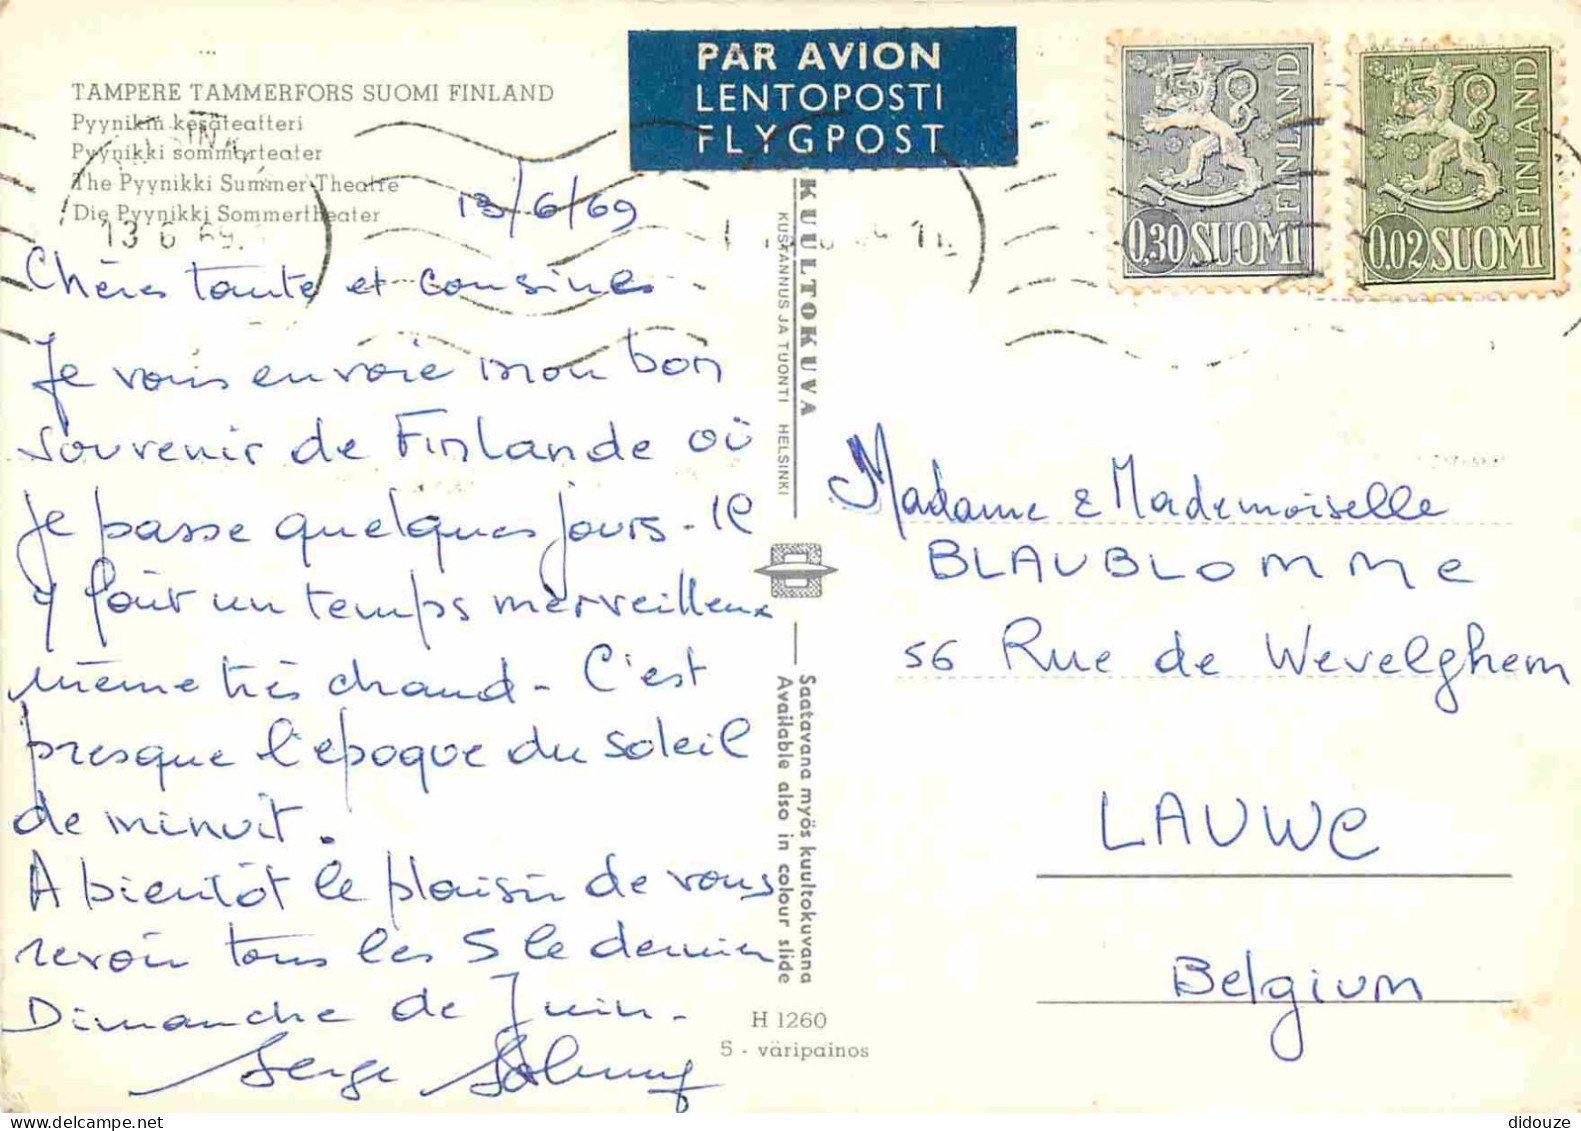 TAMPERE TAMMERFORS SUOMI FINLAND
Pyynikin kesäteatteri
Pyynikki sommarteater
The Pyynikki Summer Theatre
Die Pyynikki Sommertheater
PAR AVION
LENTOPOSTI
FLYGPOST
0,30 SUOMI
FINLAND
0,02 SUOMI
FINLAND
13 6 69
13/6/69
Chères tante et cousines
Je vous envoie mon bon
souvenir de Finlande où
je passe quelques jours - Il
y fait un temps merveilleux
même très chaud - C'est
presque l'epoque du soleil
de minuit.
A bientôt le plaisir de vous
revoir tous les 5 le dernier
Dimanche de Juin -
Serge
KUULTOKUVA
KUSTANNUS JA TUONTI HELSINKI
Saatavana myös kuultokuvana
Available also in colour slide
H 1260
5 - väripainos
Madame & Mademoiselle
BLAUBLOMME
56 Rue de Wevelghem
LAUWE
Belgium
didouze